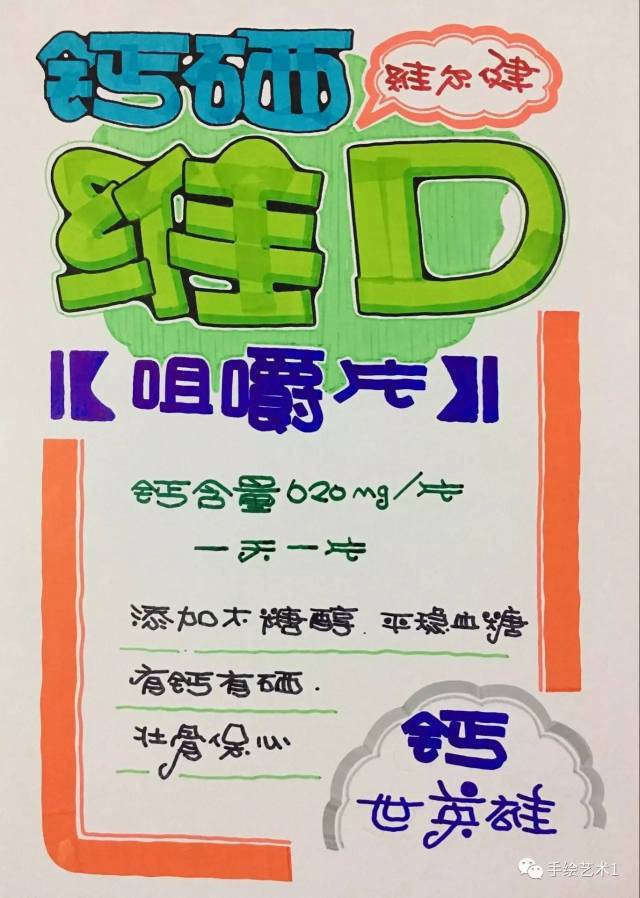 钙硒
維尔健
维D
【咀嚼片】
钙含量620mg/片
一 一片
添加木糖醇.平稳血糖
有钙有硒.
壮骨保心
钙
世英雄
手绘艺术1